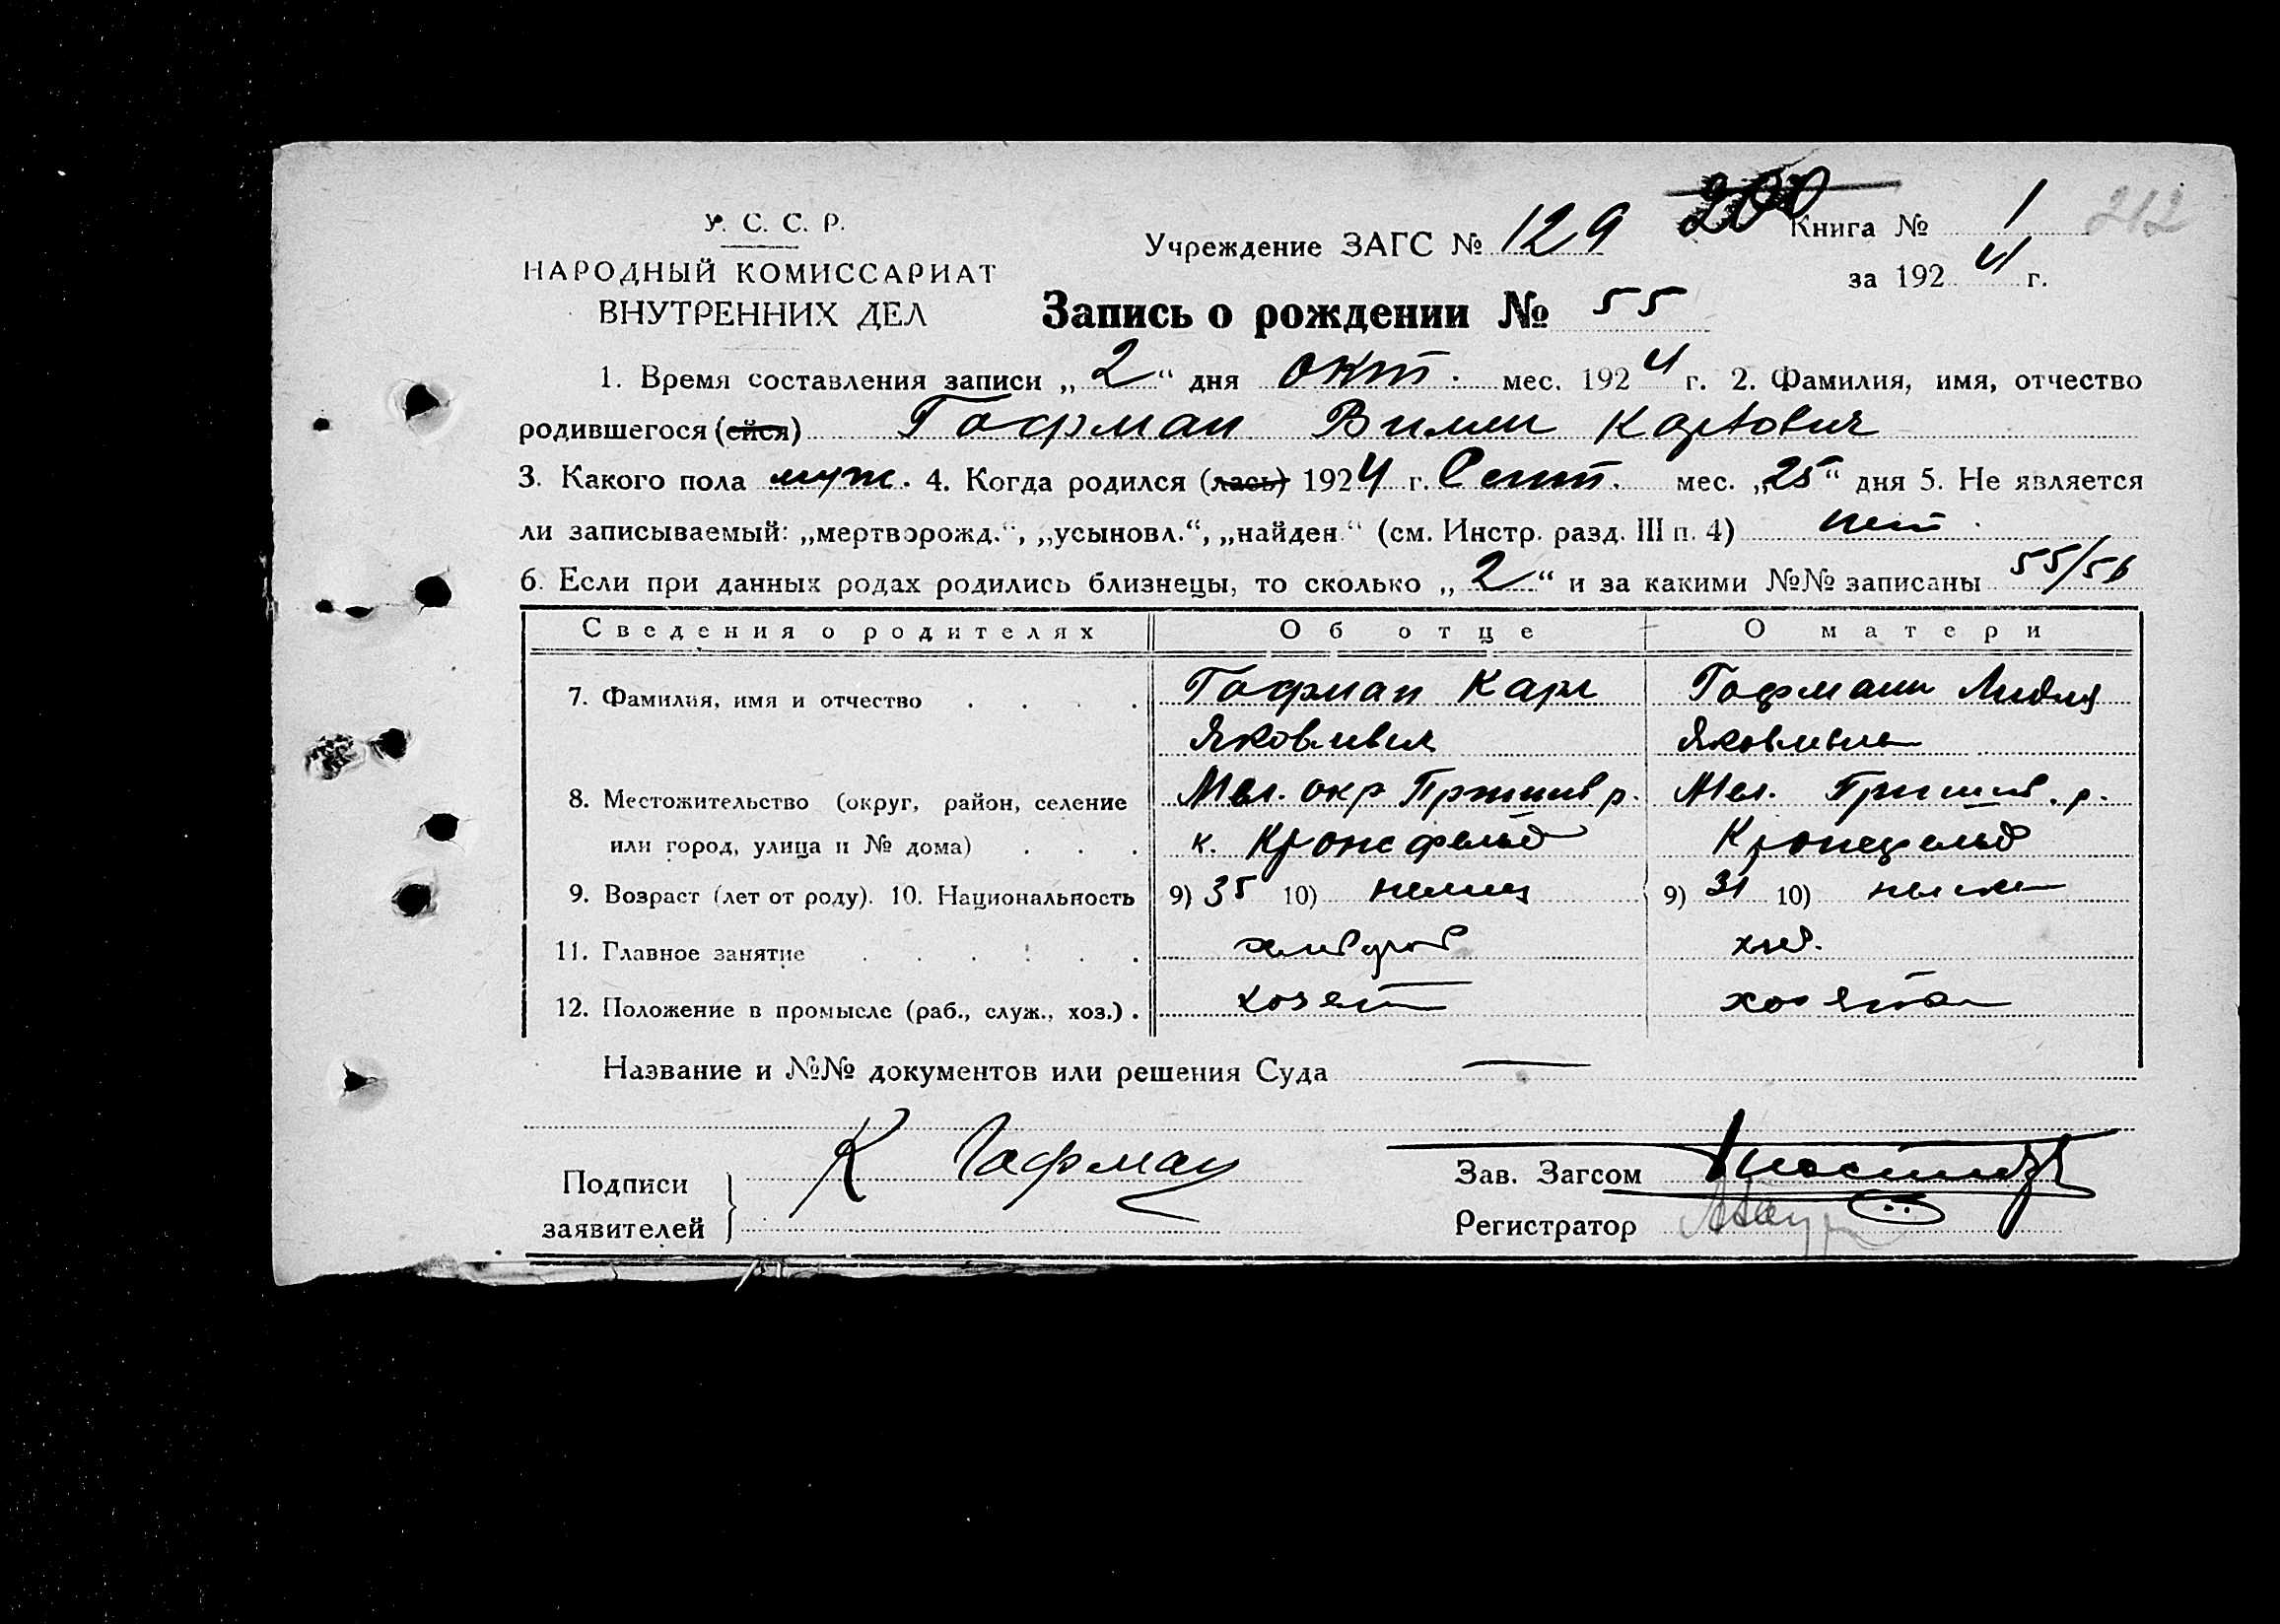 У. С. С. Р.
НАРОДНЫЙ КОМИССАРИАТ
ВНУТРЕННИХ ДЕЛ
Учреждение ЗАГС № 129
200
Книга № 1
212
за 1924 г.
Запись о рождении № 55
1. Время составления записи „2“ дня окт. мес. 1924 г. 2. Фамилия, имя, отчество
родившегося (ейся) Гофман Вилли Карлович
3. Какого пола муж. 4. Когда родился (лась) 1924 г. Сент. мес. „25“ дня 5. Не является
ли записываемый: „мертворожд.“, „усыновл.“, „найден.“ (см. Инстр. разд. III п. 4) нет.
6. Если при данных родах родились близнецы, то сколько „2“ и за какими №№ записаны 55/56
Сведения о родителях Об отце О матери
7. Фамилия, имя и отчество . . . . Гофман Карл Гофман Лидия
Яковлевич Яковлевна
8. Местожительство (округ, район, селение Мел. окр Пришив р. Мел. Пришив. р.
или город, улица и № дома) . . . к. Кронсфельд Кронсфельд
9. Возраст (лет от роду). 10. Национальность 9) 35 10) немец 9) 31 10) немка
11. Главное занятие . . . . . . хлебороб хлеб.
12. Положение в промысле (раб., служ., хоз.) . хозяин хозяйка
Название и №№ документов или решения Суда —
Подписи
заявителей
К Гофман
Зав. Загсом
Регистратор